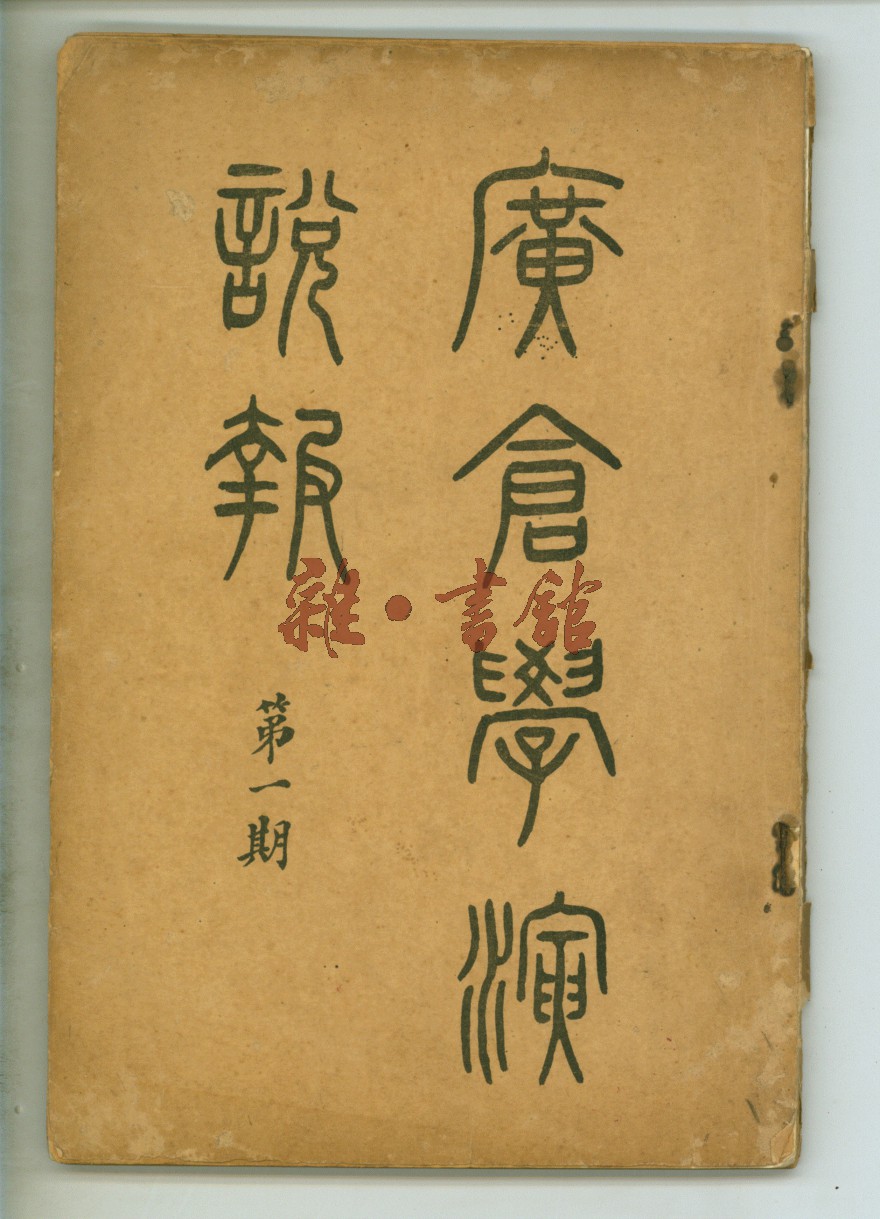 廣倉學演
說報
第一期
雜·書館